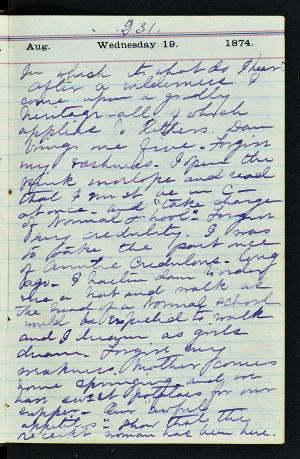 231.
Aug. Wednesday 19. 1874.
In which to what do I hear
After a wilderness I
come upon a goodly
heritage - all of which
applies to letters. Dan
brings me five - Forgive
my rashness. I open the
pink envelope and read
that I must be in C-
at once - and "take charge
of Normal School" - Forgive
my credulity. I was
to take the part
of Auntie Credulous - long
ago. I
me a hat and walk as
the head of a Normal School
would be expected to walk
and I dream as girls
dream. Forgive my
weakness. Mother comes
home and we
have sweet potatoes for our
supper - Our
appetites show that the
receipt woman has been here.